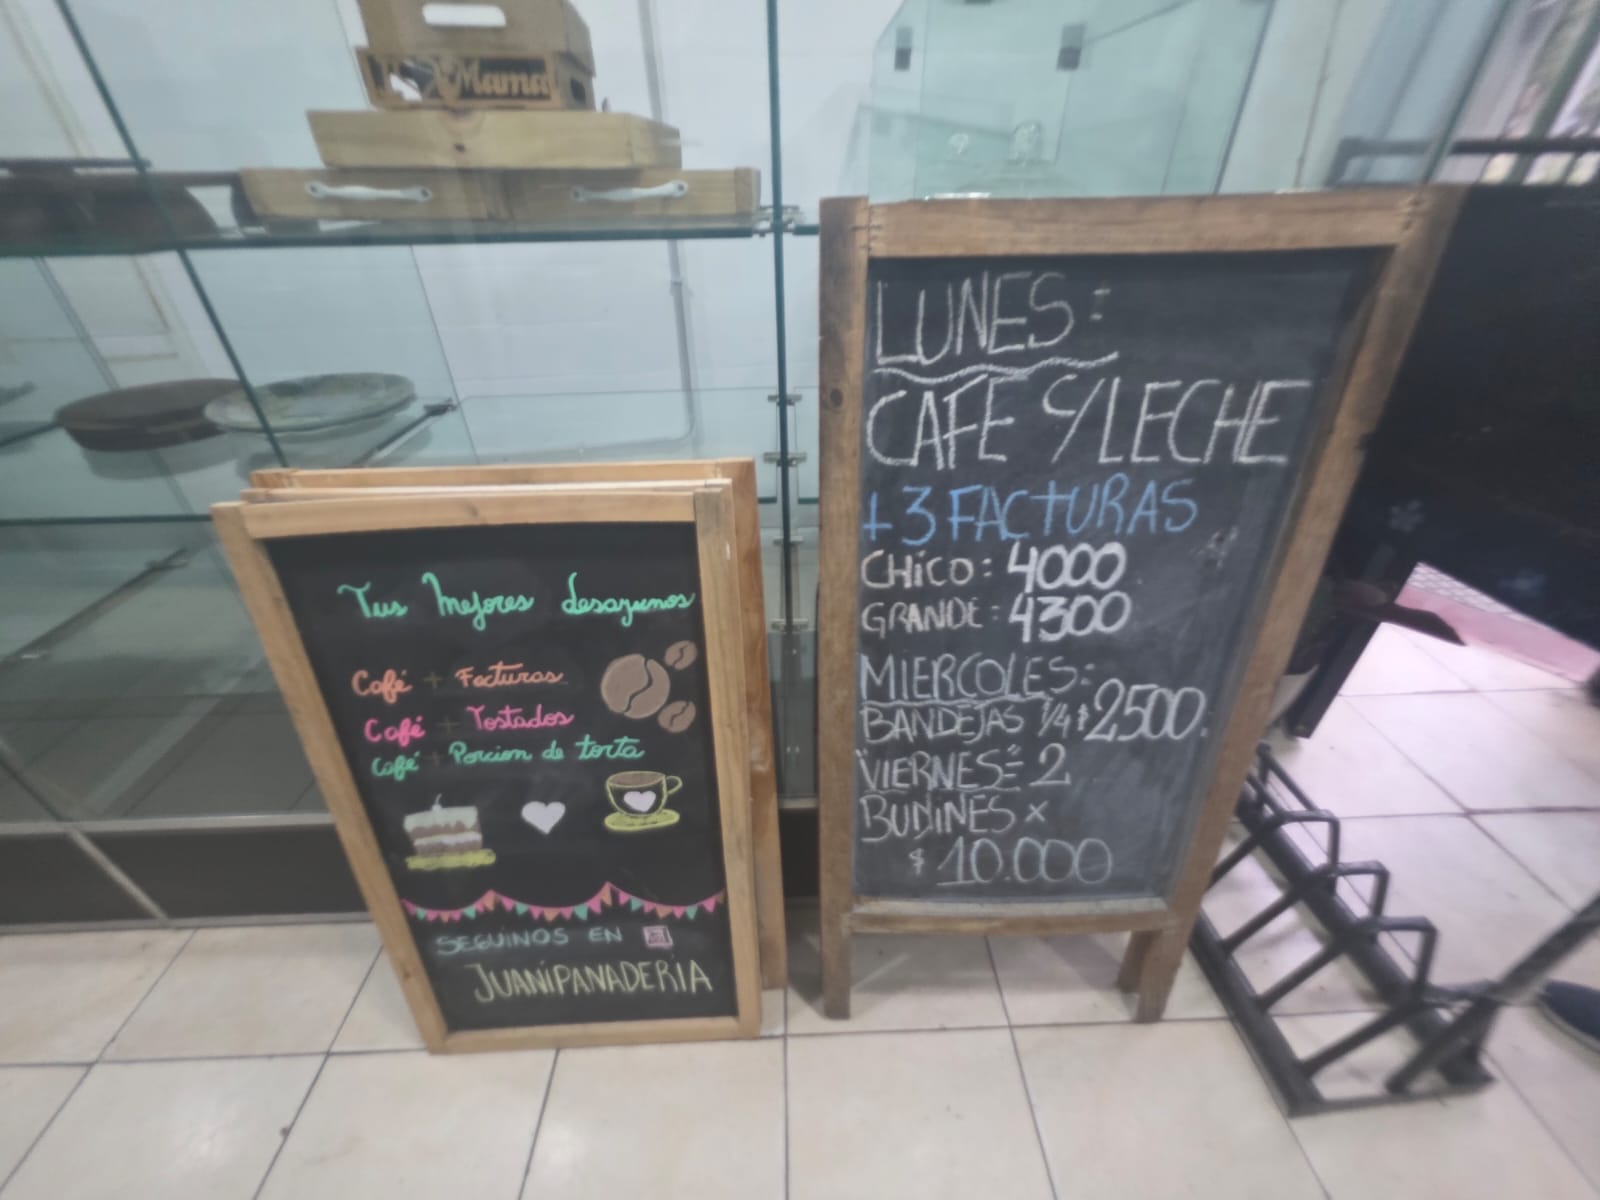 Mama
Tus Mejores desayunos
Café + Facturas
Café + Tostados
Café + Porcion de torta
SEGUINOS EN
JUANiPANADERiA
LUNES:
CAFE C/LECHE
+3 FACTURAS
CHiCO: 4000
GRANDE: 4300
MIERCOLES:
BANDEJAS 1/4 $2500.
"VIERNES" = 2
BUDiNES x
$ 10.000